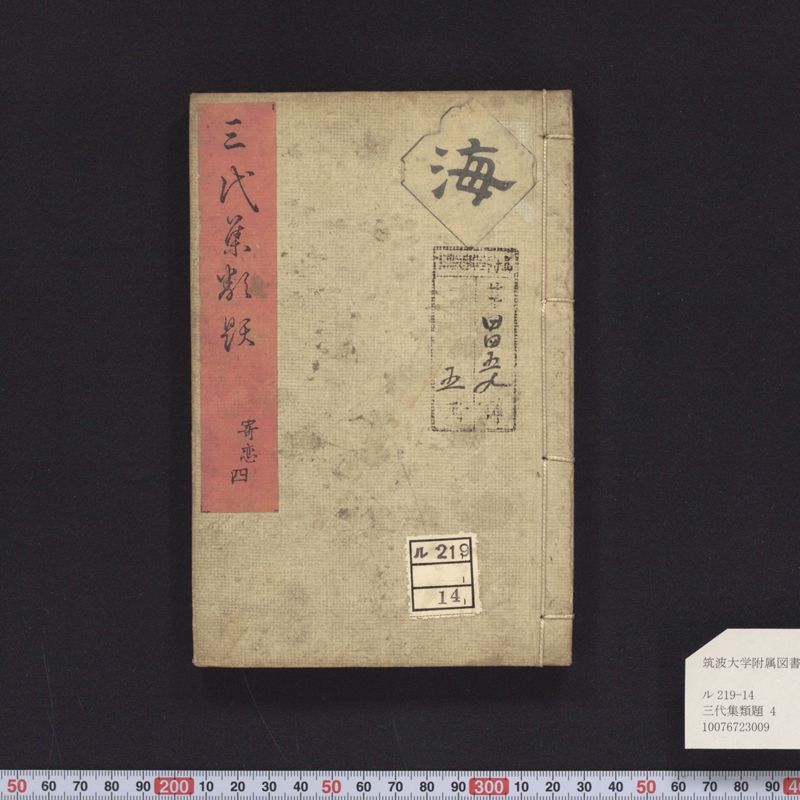 三代集類題
寄恋四
海
五
ル 219
14
筑波大学附属図書
ル 219-14
三代集類題 4
10076723009
50 60 70 80 90 200 10 20 30 40 50 60 70 80 90 300 10 20 30 40 50 60 70 80 90